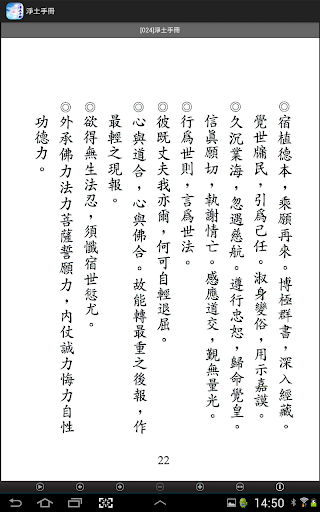 淨土手冊
[024]淨土手冊
◎宿植德本，乘願再來。博極群書，深入經藏。
覺世牖民，引爲己任。淑身變俗，用示嘉謨。
◎久沉業海，忽遇慈航。遵行忠恕，歸命覺皇。
信眞願切，執謝情亡。感應道交，覲無量光。
◎行爲世則，言爲世法。
◎彼既丈夫我亦爾，何可自輕退屈。
◎心與道合，心與佛合。故能轉最重之後報，作
最輕之現報。
◎欲得無生法忍，須懺宿世愆尤。
◎外承佛力法力菩薩誓願力，內仗誠力悔力自性
功德力。
22
14:50